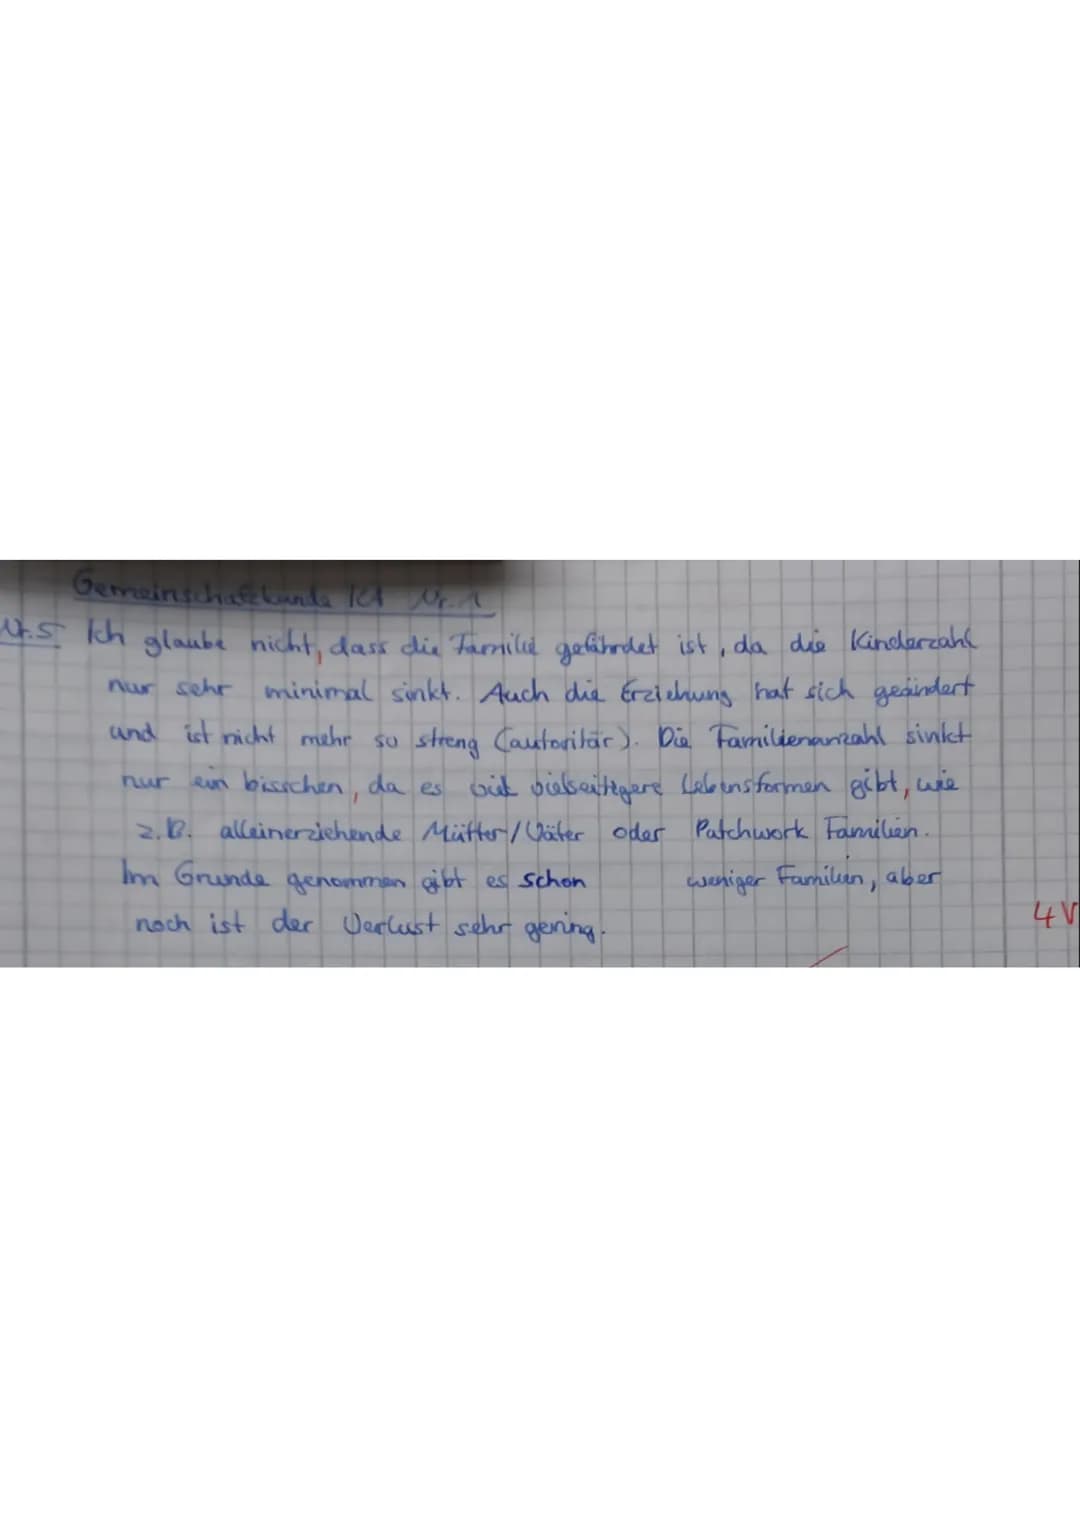 Gemeinschaftskunde KA Nr.1
Nr.5 Ich glaube nicht, dass die Familie gefährdet ist, da die Kinderzahl
nur sehr minimal sinkt. Auch die Erziehung hat sich geändert
und ist nicht mehr so streng (autoritär). Die Familienanzahl sinkt
nur ein bisschen, da es vielseitigere Lebensformen gibt, wie
z.B. alleinerziehende Mütter/Väter oder Patchwork Familien.
Im Grunde genommen gibt es schon weniger Familien, aber
noch ist der Verlust sehr gering.
4